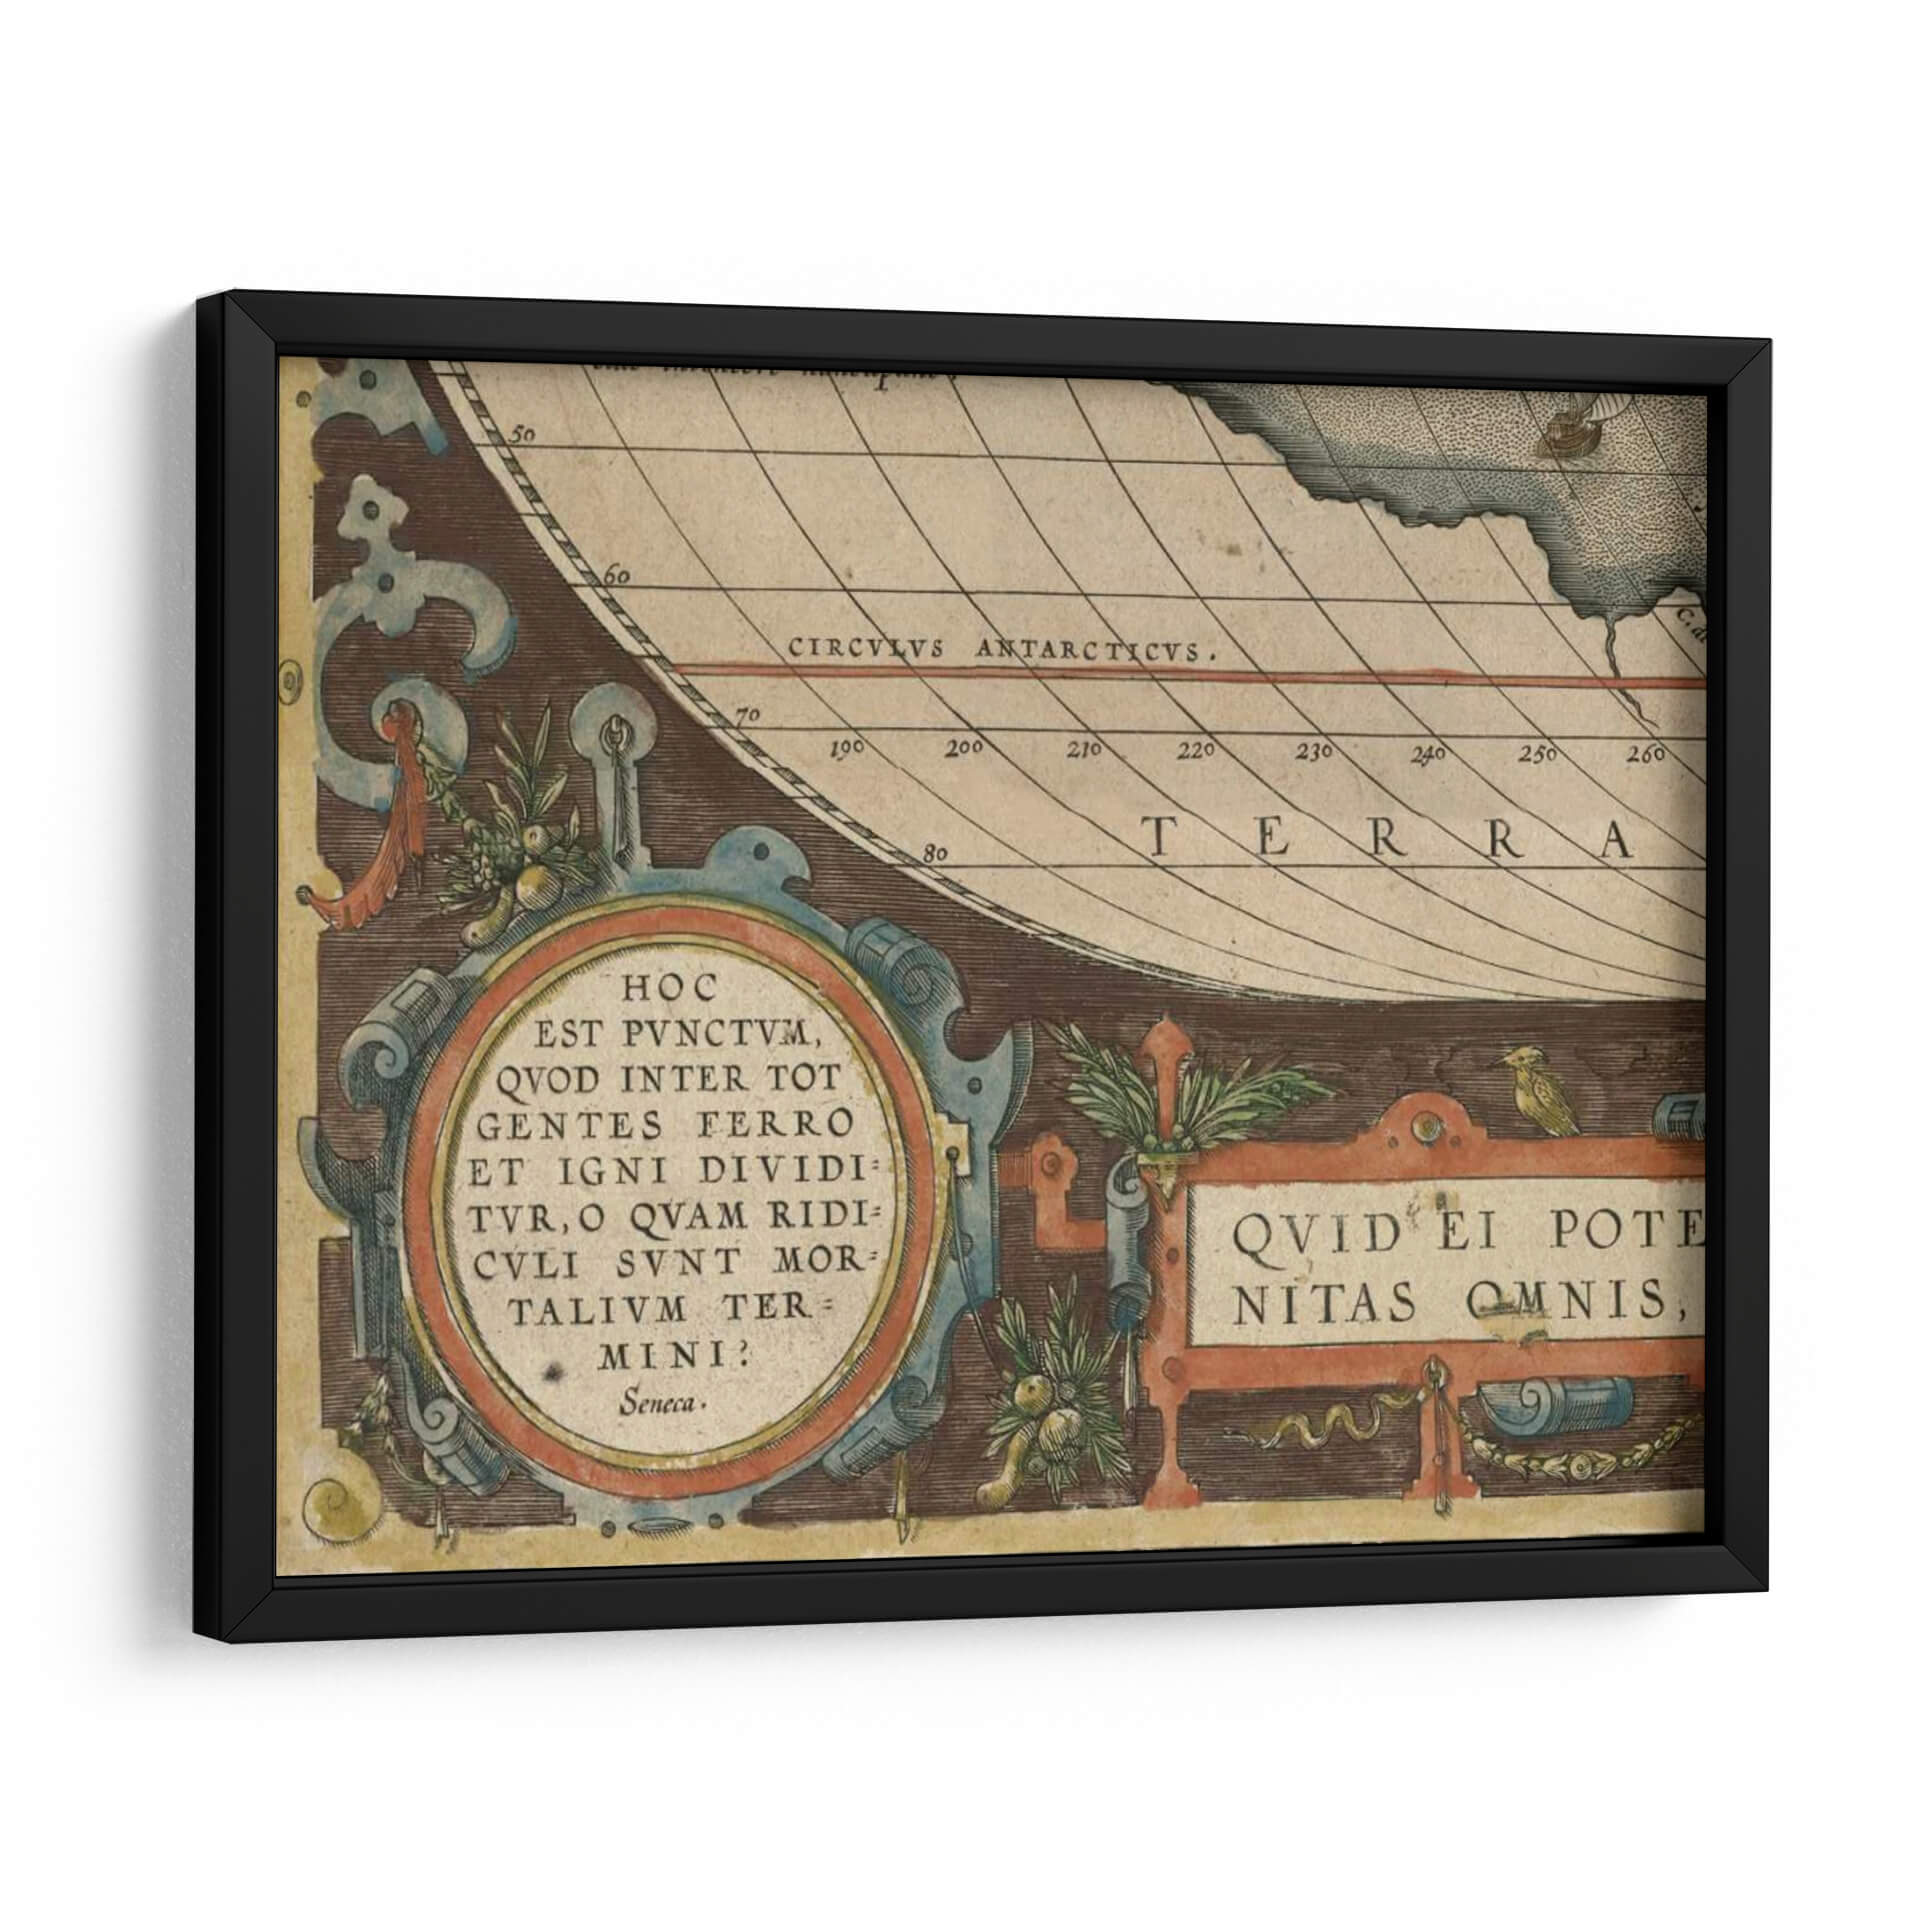 50
60
CIRCVLVS ANTARCTICVS.
70
190 200 210 220 230 240 250 260
TERRA
80
HOC
EST PVNCTVM,
QVOD INTER TOT
GENTES FERRO
ET IGNI DIVIDI=
TVR, O QVAM RIDI=
CVLI SVNT MOR=
TALIVM TER=
MINI?
Seneca.
QVID EI POTE
NITAS OMNIS,